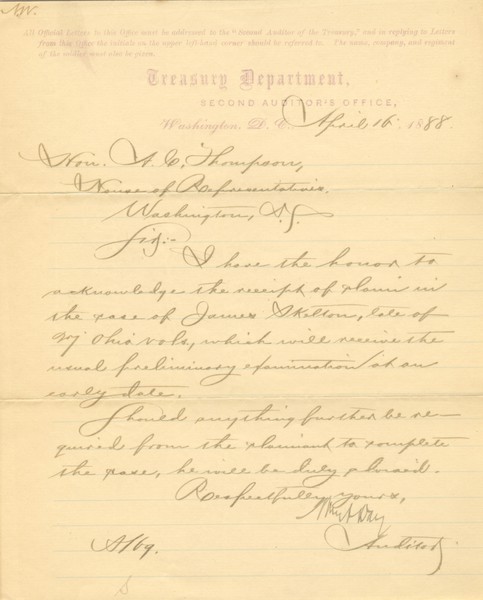 All Official Letters to this Office must be addressed to the "Second Auditor of the Treasury," and in replying to Letters
from this Office the initials on the upper left-hand corner should be referred to. The name, company, and regiment
of the soldier must also be given.
Treasury Department,
SECOND AUDITOR'S OFFICE,
Washington, D. C. April 16, 1888.
Hon. A. C. Thompson,
House of Representatives.
Washington, D.C.
Sir:-
I have the honor to
acknowledge the receipt of claim in
the case of James Skelton, late of
27 Ohio Vols, which will receive the
usual preliminary examination at an
early date.
Should anything further be re-
quired from the claimant to complete
the case, he will be duly advised.
Respectfully yours,
Auditor